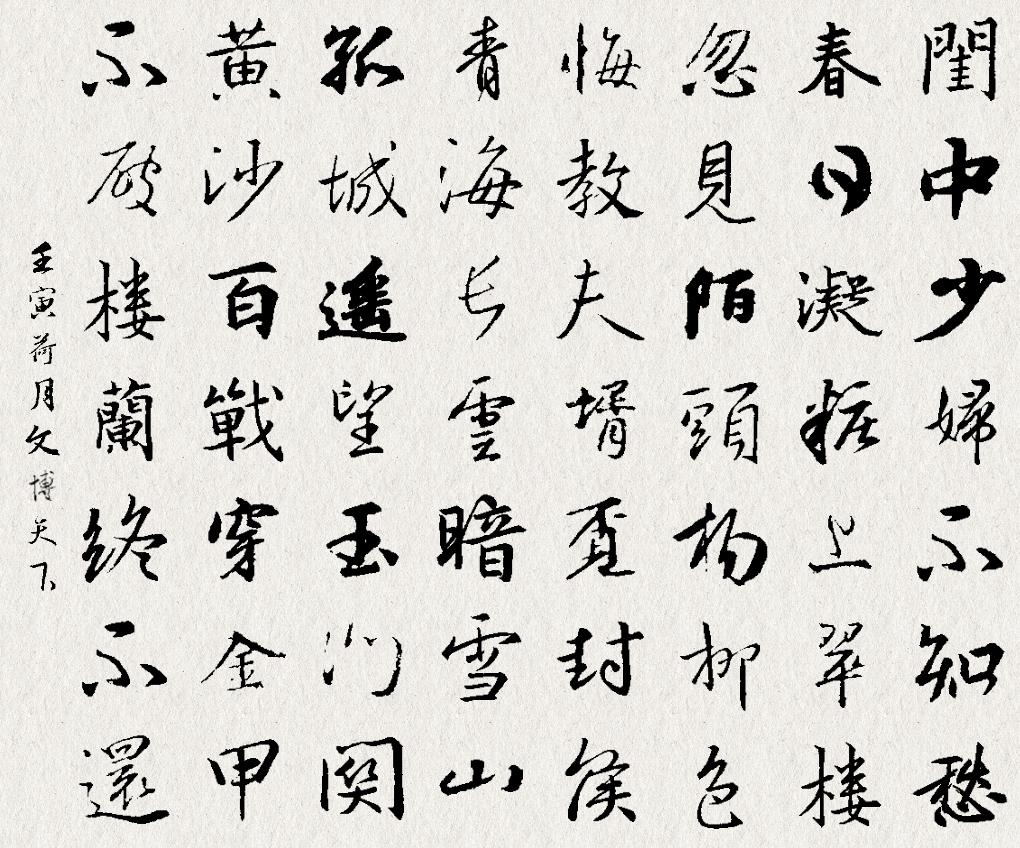 閨中少婦不知愁
春日凝粧上翠楼
忽見陌頭楊柳色
悔教夫壻覔封侯
青海长雲暗雪山
孤城遥望玉门関
黄沙百戰穿金甲
不破楼蘭终不還
壬寅荷月文博天下